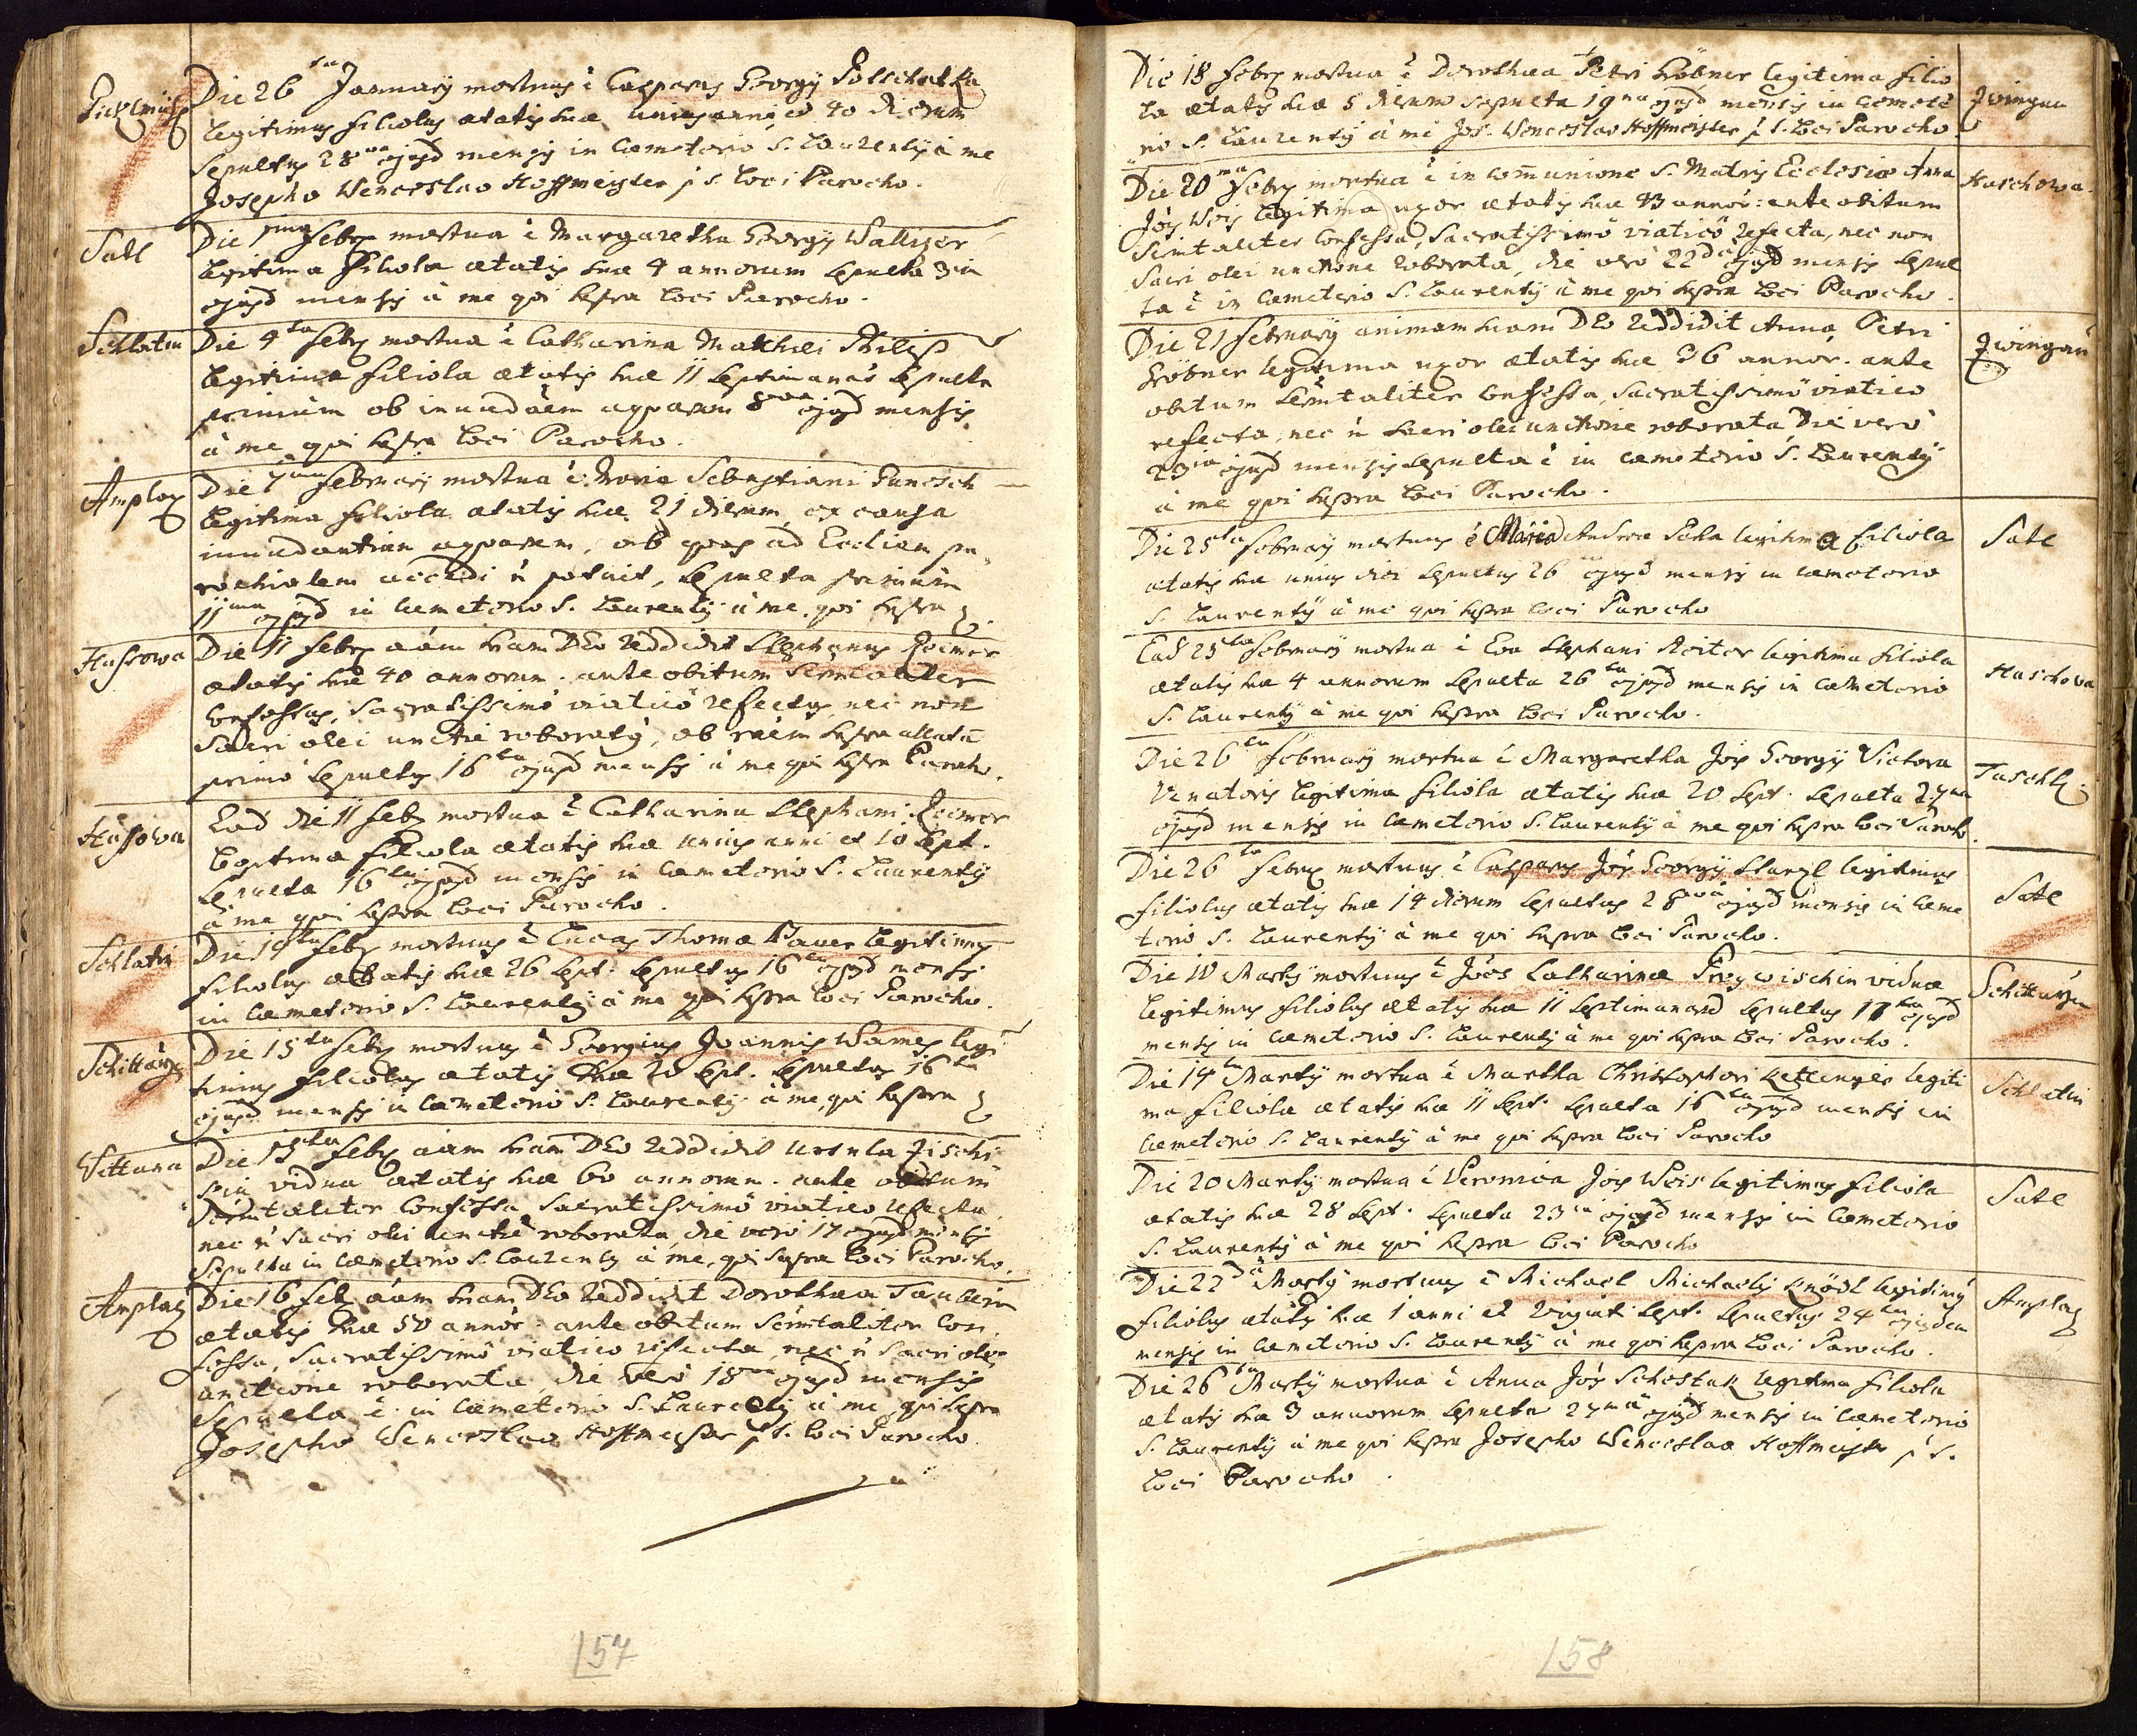 Die 26 ta January mortuus ē Casparus Georgÿ
legitimus filiolus ætatis suæ unius anni et 40 dierum
Sepultus 28 va ejusd mensis in Cæmeterio S. Laurentÿ à me
Josepho Wenceslao Hoffmeister p. t. Loci Parocho.
Satl
Die 1 ma Febr mortua ē Margaretha Georgÿ Walliser
legitima filiola ætatis suæ 4 annorum Sepulta 3 ia
ejusd mensis à me qui supra Loci Parocho.
Schlatin
Die 4 ta Febr mortua ē Catharina Mathæi Philip
legitima filiola ætatis suæ 11 Septimanar Sepulta
primum ob inundãem aquarum 8 va ejusd mensis
à me qui supra Loci Parocho.
Amplaz
Die 7 ma February mortua ē Maria Sebastiani
legitima filiola ætatis suæ 21 dierum ex causa
inundantium aquarum, ob quas ad Eccliam pa
rochialem accedi ñ potuit, Sepulta primum
11 ma ejusd in Cæmeterio S. Laurentÿ à me, qui supra
Hassowa
Die 11 Febr aãm suam DEo reddidit Stephanus Reimer
ætatis suæ 40 annorum. ante obitum Scrmtaliter
Confessus, Sacratissimô viaticô refectus nec non
Sacri olei unctiē roboratus, ob raēm supra allatã
primò Sepultus 16 ta ejusd mensis à me qui supra Parocho.
Hassowa
Ead die 11 Feb mortua ē Catharina Stephani Reimer
legitima filiola ætatis suæ unius anni et 10 Sept.
Sepulta 16 ta ejusd mensis in Cæmeterio S. Laurentÿ
à me qui supra Loci Parocho.
Schlatin
Die 14 ta Febr mortuus ē Lucas Thomæ Bauer legitimus
filiolus ætatis suæ 26 Sept. Sepultus 16 ta ejusd mensis
in Cæmeterio S. Laurentÿ à me qui supra Loci Parocho.
Schittarzen
Die 15 ta Febr mortuus ē Georgius Joannis Wames legi
timus filiolus ætatis suæ 20 Sept. Sepultus 16 ta
ejusd mensis in Cæmeterio S. Laurentÿ à me, qui supra
Wottawa
Die 15 ta Febr aãm suam DEo reddidit Ursula
vidua ætatis suæ 60 annorum. ante obitum
Scrmtaliter Confessa Sacratissimô viatico refecta
nec ñ Sacri olei unctiē roborata, die verò 17 ejusd mensis
Sepulta in Cæmeterio S. Laurentÿ à me, qui supra Loci Parocho.
Amplaz
Die 16 Feb aãm suam DEo reddidit Dorothea
ætatis suæ 50 annor. ante obitum Scrmtaliter Con
fessa, Sacratissimô viatico refecta nec ñ Sacri olei
unctione roborata, die verò 18 va ejusd mensis
Sepulta ē in Cæmeterio S. Laurentÿ à me, qui supra
Josepho Wenceslao Hoffmeister p. t. Loci Parocho.
157
Die 18 Febr mortua ē Dorothea Petri Fröbner legitima filio
la ætatis suæ 5 dierum Sepulta 19 na ejusd mensis in Cœmete
rio S. Laurentÿ à me Jos. Wenceslao Hoffmeister p. t. Loci Parocho
Zwingau
Die 20 ma Febr mortua ē in communione S. Matris Ecclesiæ Anna
Haschowa.
Jois Weis legitima uxor ætatis suæ 43 annor: ante obitum
Scrmtaliter Confessa, Sacratissimô viaticô refecta, nec non
Sacri olei unctione roborata, die verò 22 da ejusd mensis Sepul
ta ē in Cæmeterio S. Laurentÿ à me qui supra Loci Parocho.
Die 21 February animam suam DEo reddidit Anna Petri
Fröbner legitima uxor ætatis suæ 36 annor. ante
Zwingau
obitum Scrmtaliter Confessa, Sacratissimô viatico
refecta, nec ñ Sacri olei unctione roborata Die verò
23 ia ejusd mensis Sepulta ē in Cæmeterio S. Laurentÿ
à me qui supra Loci Parocho.
Die 25 ta February mortuus ē Maria Andreæ legitima filiola
Satl
ætatis suæ unius diei Sepultus 26 ejusd mensis in Cæmeterio
S. Laurentÿ à me qui supra Loci Parocho
Ead 25 ta February mortua ē Eva Stephani Reiter legitima filiola
ætatis suæ 4 annorum Sepulta 26 ta ejusd mensis in Cæmeterio
Haschowa
S. Laurentÿ à me qui supra Loci Parocho.
Die 26 ta February mortua ē Margaretha Jois Georgÿ Victora
Taschl
Venatoris legitima filiola ætatis suæ 20 Sept. Sepulta 27 ma
ejusd mensis in Cæmeterio S. Laurentÿ à me qui supra Loci Parocho.
Die 26 ta Febr mortuus ē Casparus Jois Georgÿ Stangl legitimus
filiolus ætatis suæ 14 dierum Sepultus 28 va ejusd mensis in Cæme
Satl
terio S. Laurentÿ à me qui supra Loci Parocho.
Die 10 Martÿ mortuus ē Joes Catharinæ viduæ
Schittarzen
legitimus filiolus ætatis suæ 11 Septimanard Sepultus 17 ta ejusd
mensis in Cæmeterio S. Laurentÿ à me qui supra Loci Parocho.
Die 14 ta Martÿ mortua ē Martha Christophori legiti
Schlatin
ma filiola ætatis suæ 11 Sept. Sepulta 16 ta ejusd mensis in
Cæmeterio S. Laurentÿ à me qui supra Loci Parocho
Die 20 Martÿ mortua ē Veronica Jois Weis legitimus filiola
Satl
ætatis suæ 28 Sept. Sepulta 23 ia ejusd mensis in Cæmeterio
S. Laurentÿ à me qui supra Loci Parocho
Die 22 da Martÿ mortuus ē Michael Michaelis Knödl legitimus
Amplaz
filiolus ætatis suæ 1 anni et viginti Sept. Sepultus 24 ta ejusdem
mensis in Cæmeterio S. Laurentÿ à me qui supra Loci Parocho.
Die 26 ta Martÿ mortua ē Anna Jois Schostak legitima filiola
ætatis suæ 3 annorum Sepulta 27 ma ejusd mensis in Cæmeterio
S. Laurentÿ à me qui supra Josepho Wenceslao Hoffmeister p. t.
Loci Parocho.
158